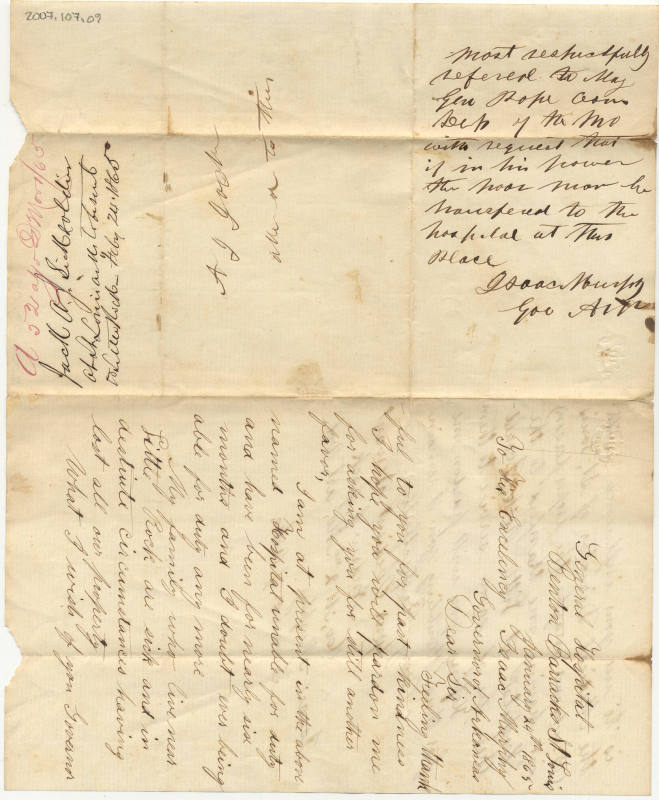 2007.107.09
most respectfully
refered to Maj
Gen Pope Com
Dep of the Mo
with request that
if in his power
the poor man be
transfered to the
hospital at this
place
Isaac Murphy
Gov Ark
A 521
Jack
at St Louis
to Little Rock Feby 20 1865
General Hospital
Benton Barracks St Louis
January 24th 1865
To His Excelency
Isaac Murphy
Governor of Arkansas
Dear Sir
Feeling thank
ful to you for past kindness
I hope you will pardon me
for asking you for still another
favor,
I am at present in the above
named Hospital unable for duty
and have been for nearly six
months and I doubt ever being
able for duty any more
My family who live near
Little Rock are sick and in
destitute circumstances having
lost all our Property
What I wish of you Governor